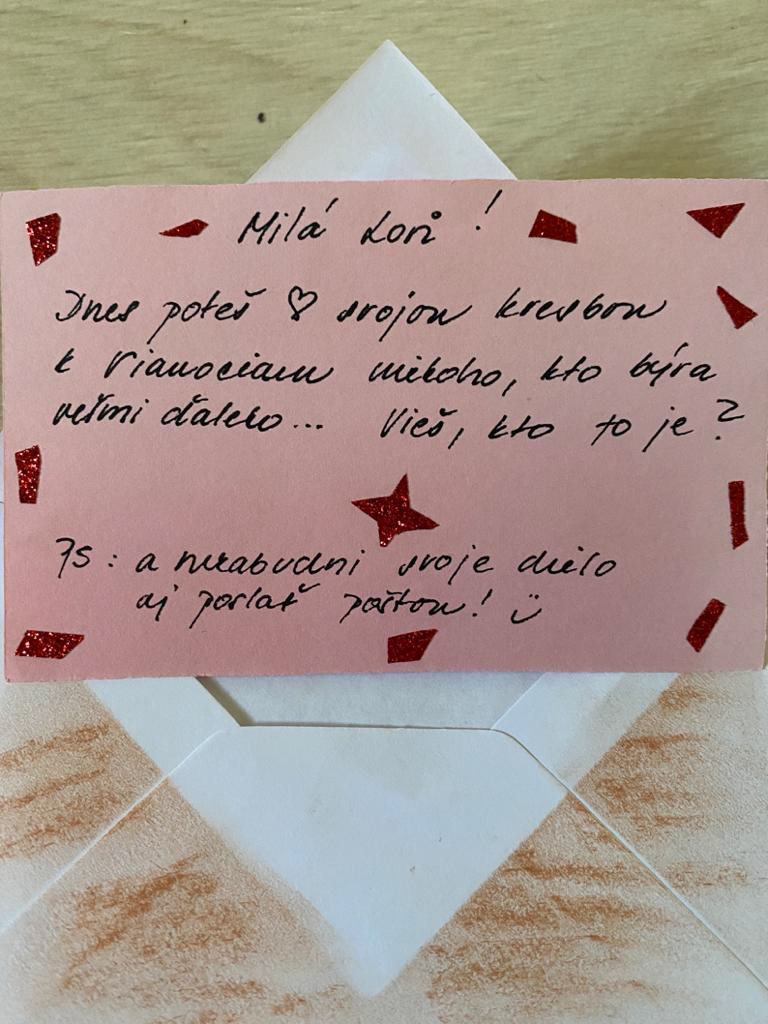 Milá Lori !
Dnes poteš ♡ svojou kresbou
k Vianociam niekoho, kto býva
veľmi ďaleko... Vieš, kto to je?
PS: a nezabudni svoje dielo
aj poslať poštou! ☺